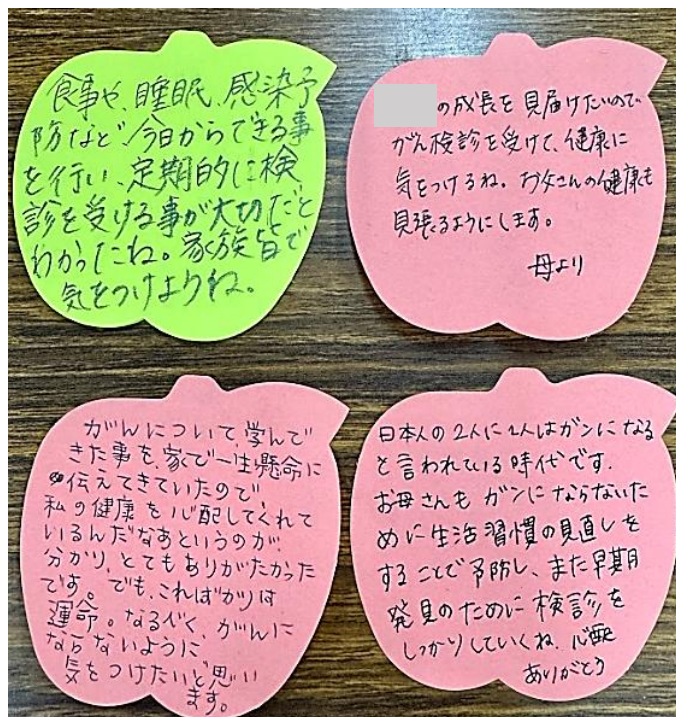 食事や、睡眠、感染予
防など、今日からできる事
を行い、定期的に検
診を受ける事が大切だと
わかったね。家族皆で
気をつけようね。
の成長を見届けたいので
がん検診を受けて、健康に
気をつけるね。お父さんの健康も
見張るようにします。
母より
がんについて、学んで
きた事を、家で一生懸命に
伝えてきていたので、
私の健康を心配してくれて
いるんだなあというのが
分かり、とてもありがたかった
です。でも、こればかりは
運命。なるべく、がんに
ならないように
気をつけたいと思い
ます。
日本人の2人に1人はガンになる
と言われている時代です。
お母さんもガンにならないた
めに生活習慣の見直しを
することで予防し、また早期
発見のために検診を
しっかりしていくね。心配
ありがとう